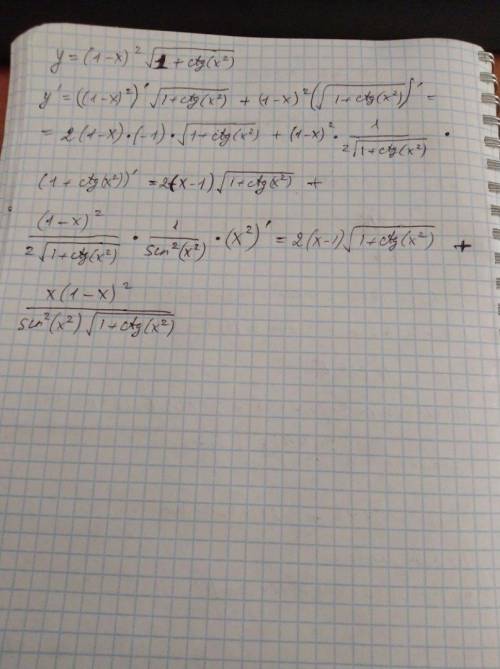 y = (1-x)² √(1+ctg(x²))
y' = ((1-x)²)' √(1+ctg(x²)) + (1-x)² (√(1+ctg(x²)))' =
= 2(1-x)·(-1)·√(1+ctg(x²)) + (1-x)² · 1/(2√(1+ctg(x²))) ·
(1+ctg(x²))' = 2(x-1)√(1+ctg(x²)) +
(1-x)²/(2√(1+ctg(x²))) · 1/sin²(x²) · (x²)' = 2(x-1)√(1+ctg(x²)) +
x(1-x)²/(sin²(x²)√(1+ctg(x²)))